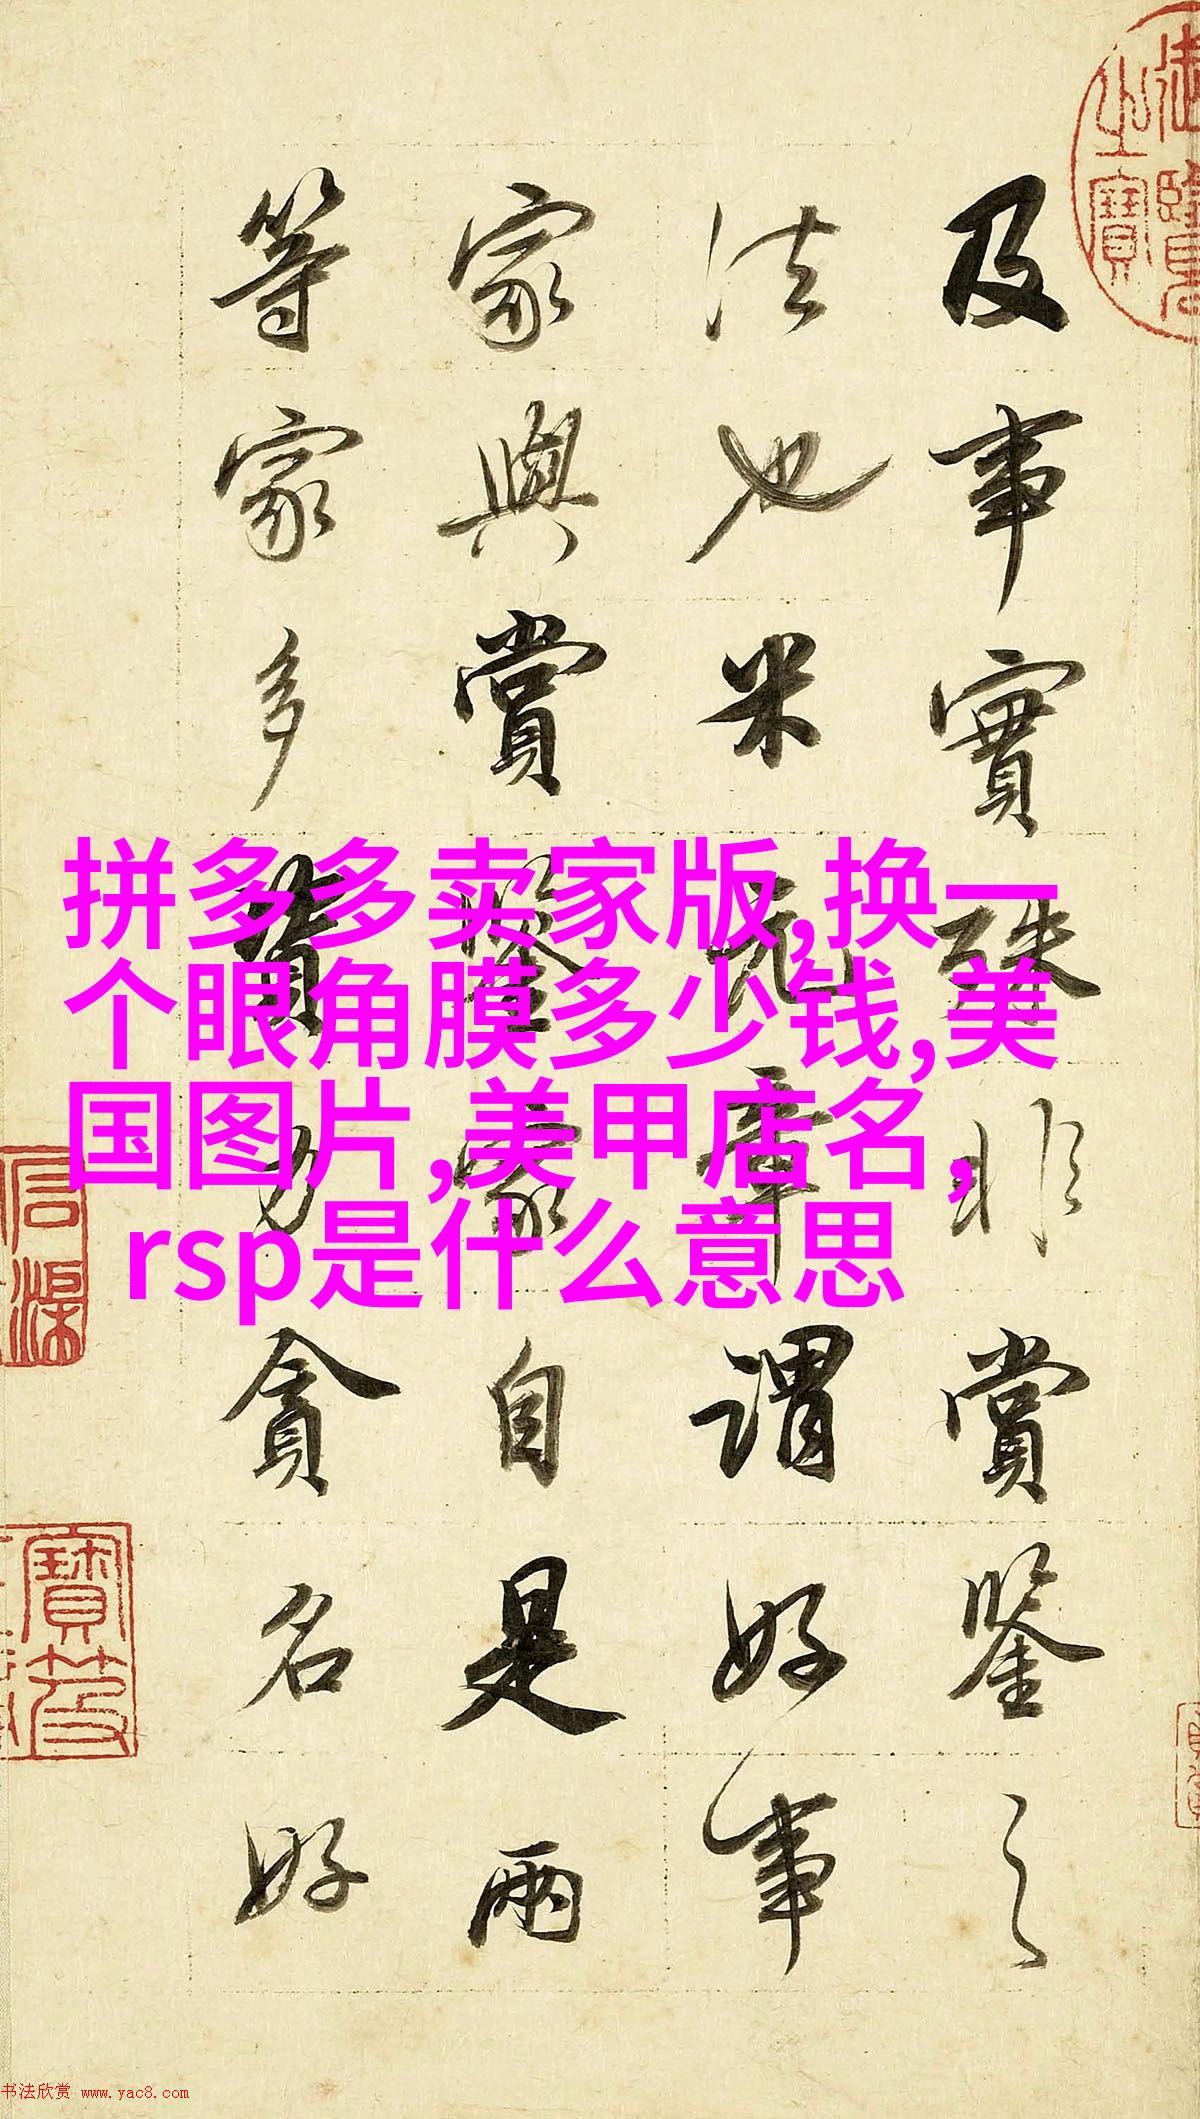 及事實殊非賞鑒之
法也米元章謂好事
家與賞鑒家自是兩
等家多資力貪名好
拼多多卖家版,换一
个眼角膜多少钱,美
国图片,美甲店名,
rsp是什么意思
书法欣赏 www.yac8.com